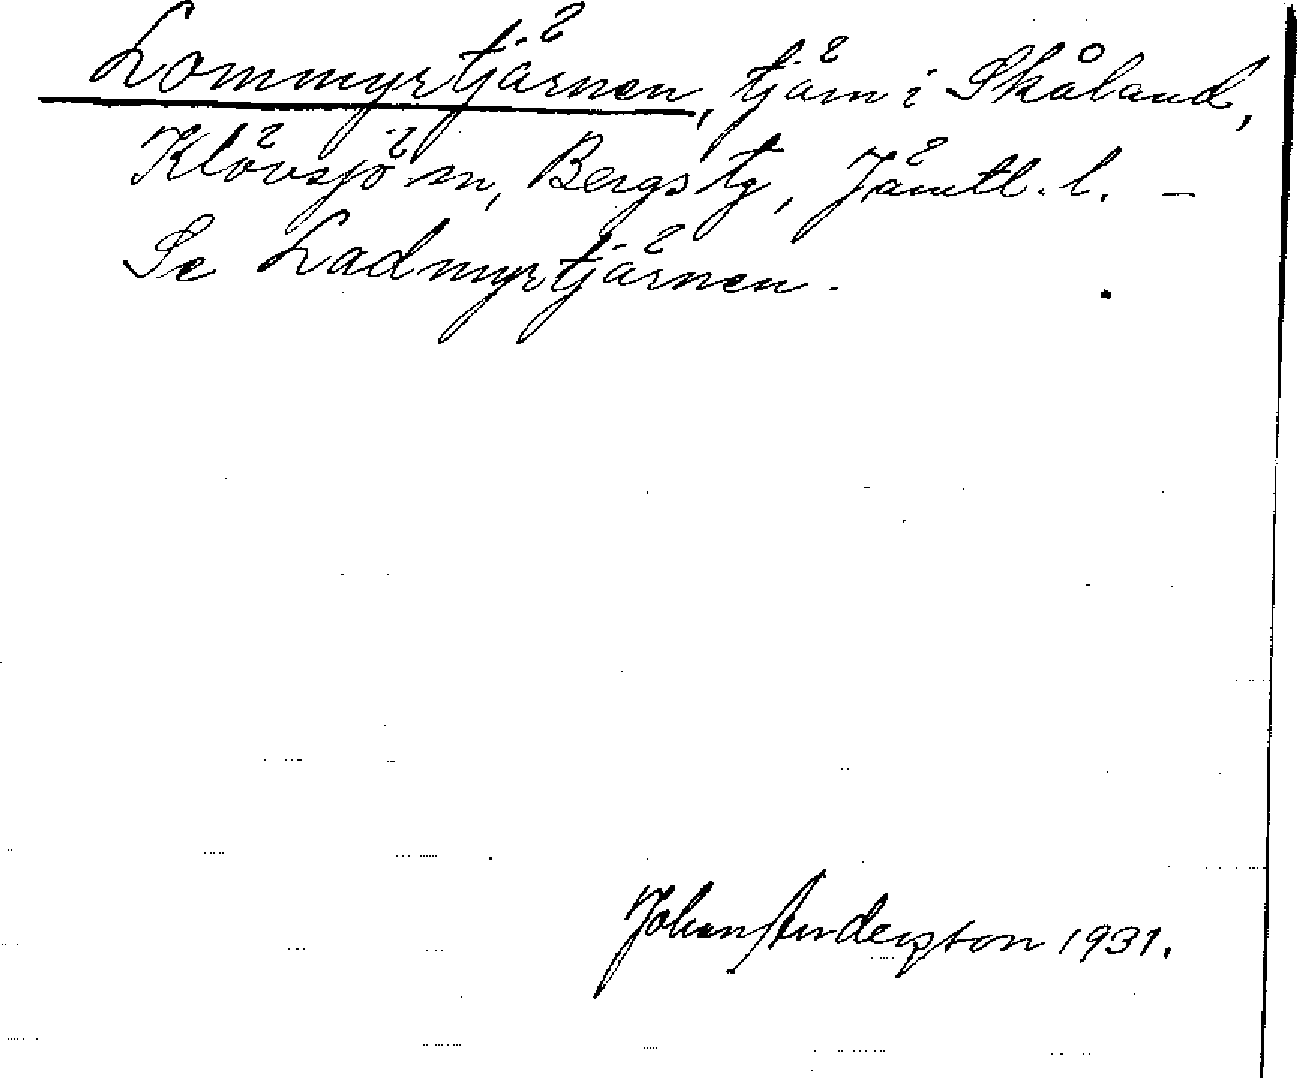 Lommyrtjärnen, tjärn i Skåland,
Klövsjö sn, Bergs tg, Jämtl. l. –
Se Ladmyrtjärnen.
Johan Anderzton 1931.